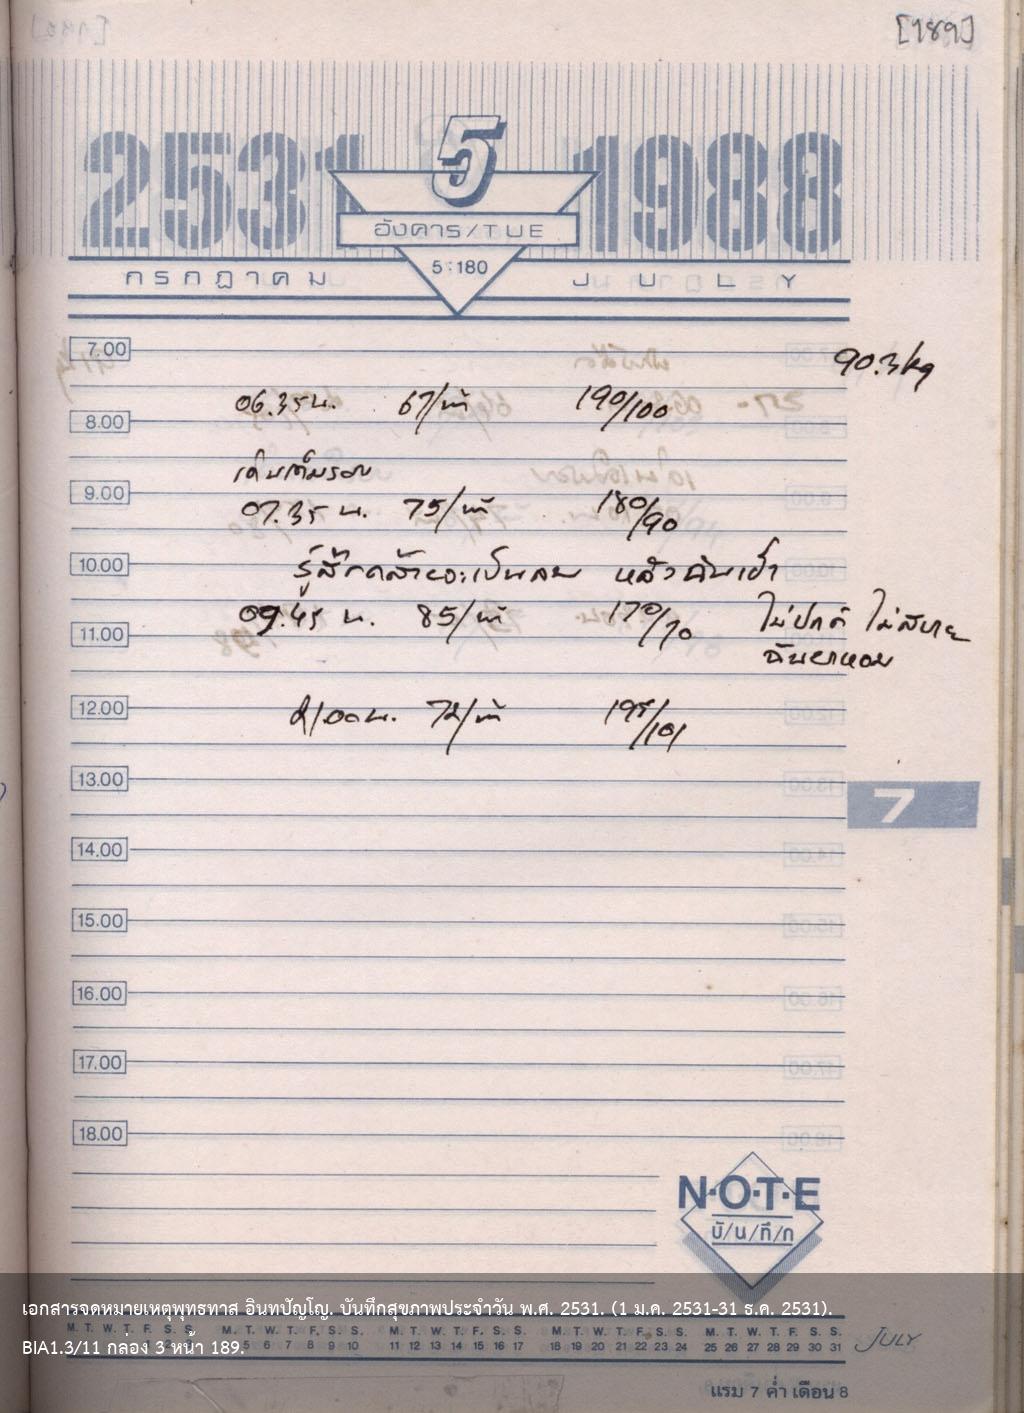 [189]
2531 5 1988
อังคาร/TUE
5:180
กรกฎาคม JULY
7.00
90.3 kg
06.35 น. 67/นาที 190/100
8.00
เดินเต็มรอบ
9.00
07.35 น. 75/นาที 180/90
10.00
รู้สึกคล้ายจะเป็นลม หลังฉันเช้า
09.45 น. 85/นาที 170/70 ไม่ปกติ ไม่สบาย
11.00
ฉันยาหอม
12.00
72/นาที 195/101
13.00
7
14.00
15.00
16.00
17.00
18.00
N·O·T·E
บั/น/ทึ/ก
เอกสารจดหมายเหตุพุทธทาส อินทปัญโญ. บันทึกสุขภาพประจำวัน พ.ศ. 2531. (1 ม.ค. 2531-31 ธ.ค. 2531).
M. T. W. T. F. S. S. M. T. W. T. F. S. S. M. T. W. T. F. S. S. M. T. W. T. F. S. S. M. T. W. T. F. S. S. JULY
5 6 7 8 9 10 11 12 13 14 15 16 17 18 19 20 21 22 23 24 25 26 27 28 29 30 31
BIA1.3/11 กล่อง 3 หน้า 189.
แรม 7 ค่ำ เดือน 8